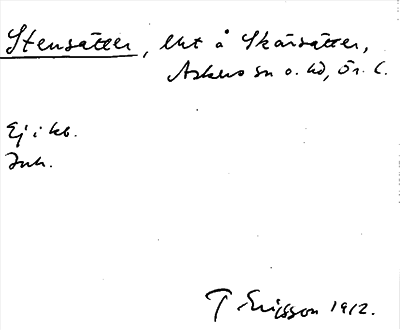 Stensätter, lht å Skärsätter,
Askers sn o. hd, Ör. l.
Ej i kb.
Inh.
T Ericsson 1912.